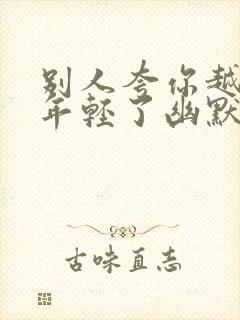 别人夸你越
年轻了幽默
古味直志